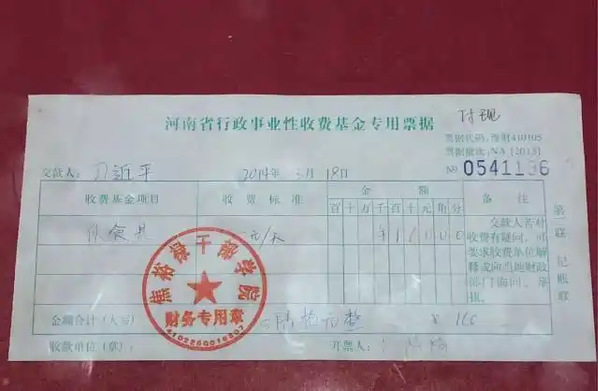 付现
河南省行政事业性收费基金专用票据
票据代码:豫财410105
票据批次:NA[2013]
№ 0541136
交款人: 习近平 2014年 3月 18日
收费基金项目 收费标准 金额 备注
百十万千百十元角分
伙食费 元/天
交款人若对
收费有疑问,可
要求收费单位解
释或向当地财政
部门询问、举
报。
第一联 记账联
焦裕禄干部学院
财务专用章
金额合计(大写) ¥ 160
收款单位(章): 开票人: